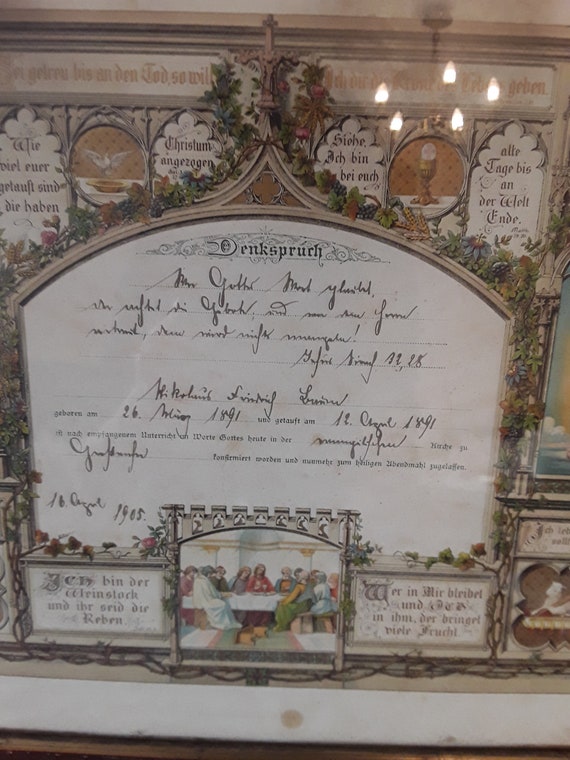 Sei getreu bis an den Tod, so will
Ich dir die Krone des Lebens geben.
Wie
viel euer
getauft sind
die haben
Christum
angezogen
Siehe,
Ich bin
bei euch
alle
Tage bis
an
der Welt
Ende.
Denkspruch
Wer Gottes Wort glaubet,
der achtet die Gebote, und wer dem Herrn
vertraut, dem wird nichts mangeln!
Jesus Sirach 32, 28
Nikolaus Friedrich
geboren am 26. März 1891 und getauft am 12. April 1891
ist nach empfangenem Unterricht im Worte Gottes heute in der evangelischen Kirche zu
konfirmiert worden und nunmehr zum heiligen Abendmahl zugelassen.
16. April 1905.
Ich bin der
Weinstock
und ihr seid die
Reben.
Wer in Mir bleibet
und Ich
in ihm, der bringet
viele Frucht.